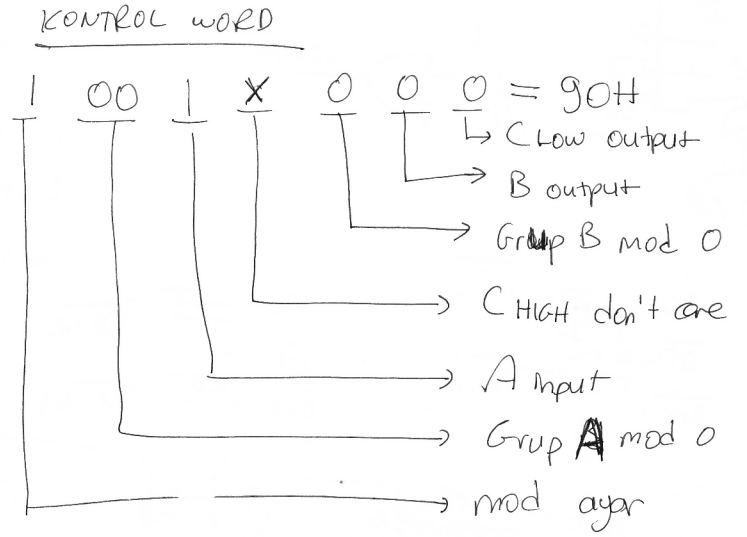 KONTROL WORD
1 00 1 X 0 0 0 = 90H
C LOW output
B output
Grup B mod 0
C HIGH don't care
A input
Grup A mod 0
mod ayar